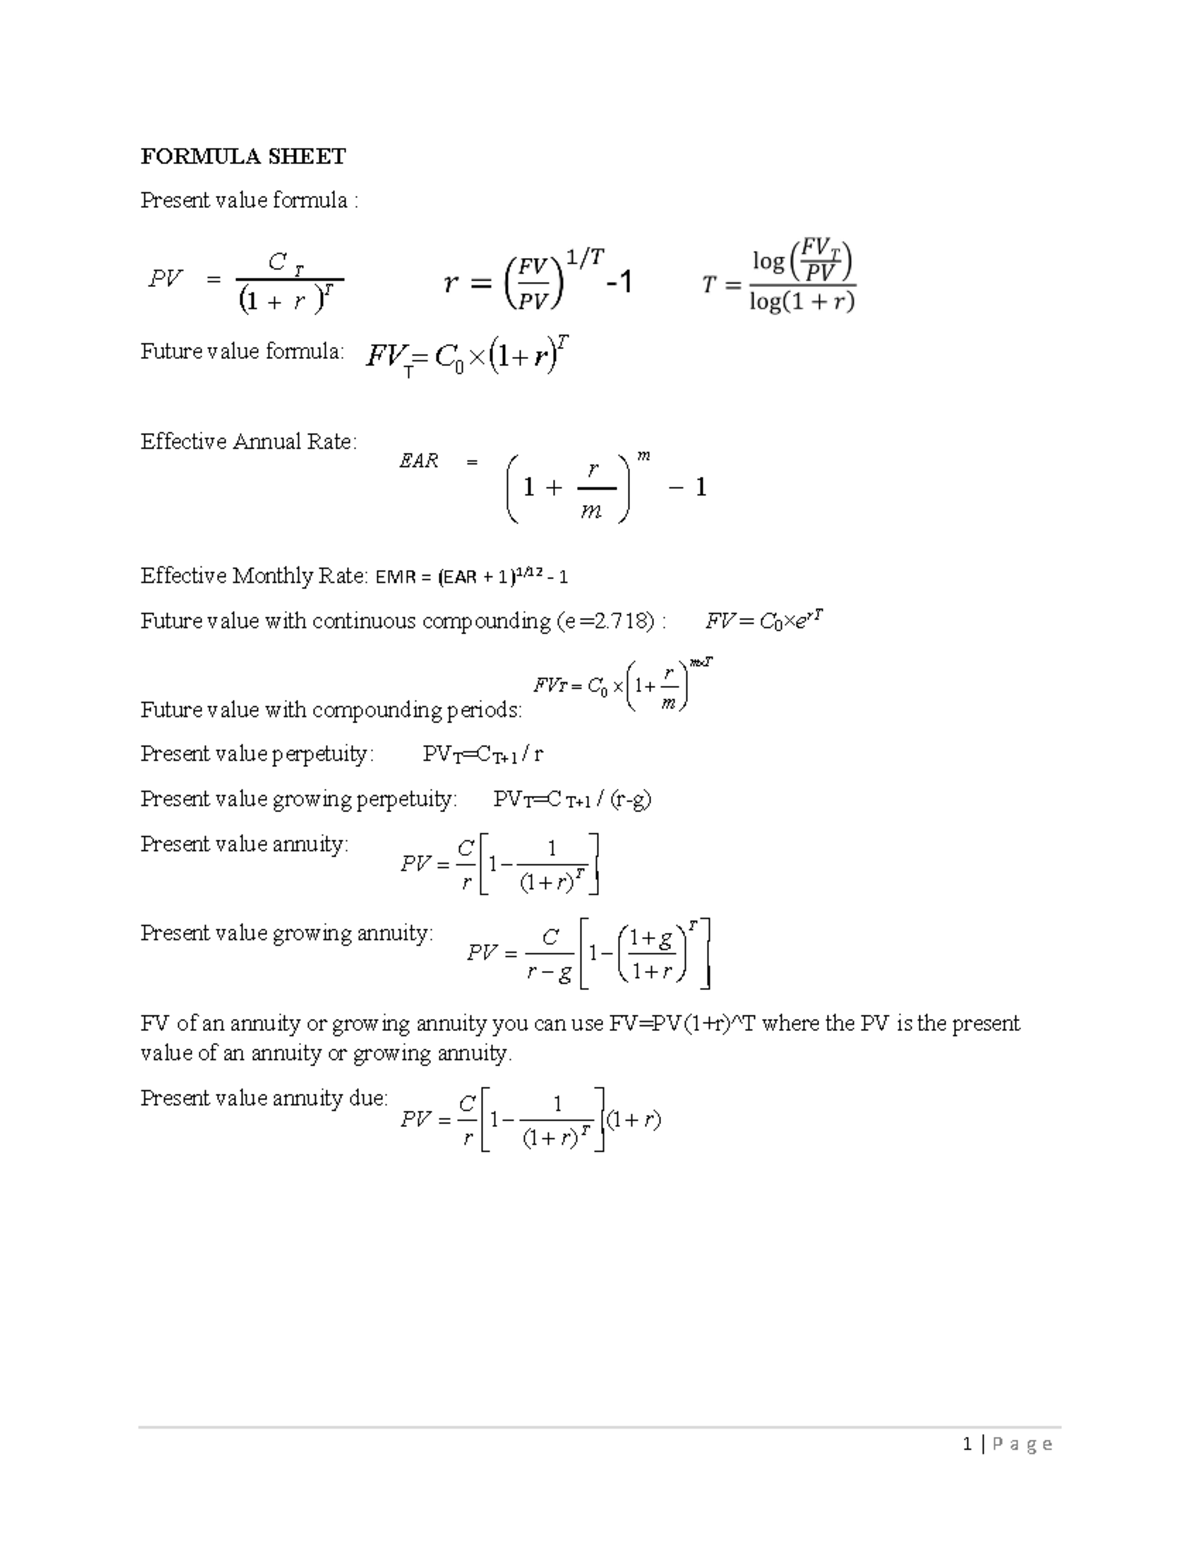 FORMULA SHEET
Present value formula :
PV = C_T / (1 + r)^T    r = (FV/PV)^{1/T} -1    T = log(FV_T/PV) / log(1 + r)
Future value formula: FV_T = C_0 × (1 + r)^T
Effective Annual Rate: EAR = (1 + r/m)^m − 1
Effective Monthly Rate: EMR = (EAR + 1)^{1/12} - 1
Future value with continuous compounding (e=2.718) : FV = C_0×e^{rT}
Future value with compounding periods: FVT = C_0 × (1 + r/m)^{m×T}
Present value perpetuity: PV_T=C_{T+1} / r
Present value growing perpetuity: PV_T=C_{T+1} / (r-g)
Present value annuity: PV = C/r [1 − 1/(1 + r)^T]
Present value growing annuity: PV = C/(r − g) [1 − ((1 + g)/(1 + r))^T]
FV of an annuity or growing annuity you can use FV=PV(1+r)^T where the PV is the present
value of an annuity or growing annuity.
Present value annuity due: PV = C/r [1 − 1/(1 + r)^T] (1 + r)
1 | Page